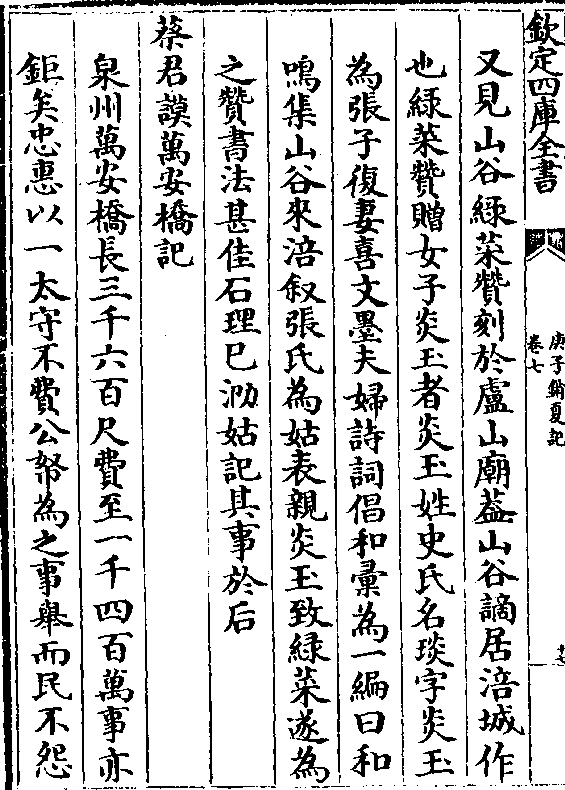 欽定四庫全書
庚子銷夏記
卷七
又見山谷綠菜贊刻於盧山廟葢山谷謫居涪城作
也綠菜贊贈女子炎玉者炎玉姓史氏名琰字炎玉
為張子復妻喜文墨夫婦詩詞倡和彚為一編曰和
鳴集山谷來涪叙張氏為姑表親炎玉致綠菜遂為
之贊書法甚佳石理已泐姑記其事於后
蔡君謨萬安橋記
泉州萬安橋長三千六百尺費至一千四百萬事亦
鉅矣忠惠以一太守不費公帑為之事舉而民不怨